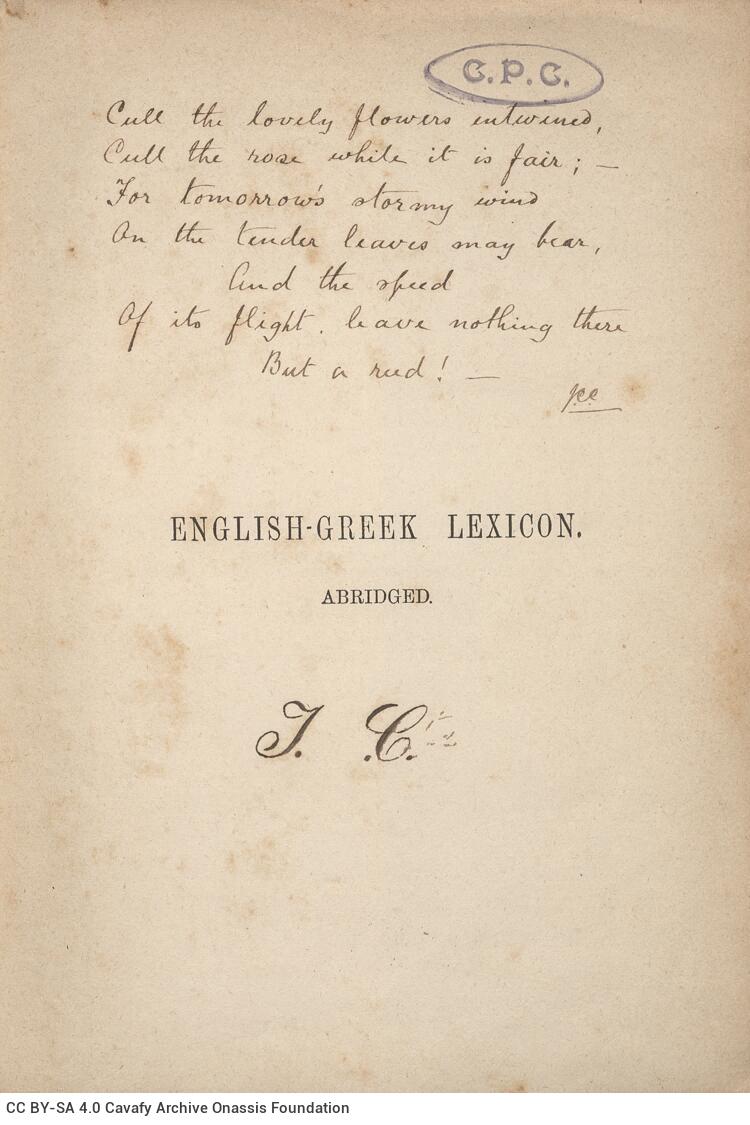 C.P.C.
Cull the lovely flowers entwined,
Cull the rose while it is fair; —
For tomorrow's stormy wind
On the tender leaves may bear,
And the speed
Of its flight. leave nothing there
But a reed! —
ENGLISH-GREEK LEXICON.
ABRIDGED.
J. C.
CC BY-SA 4.0 Cavafy Archive Onassis Foundation